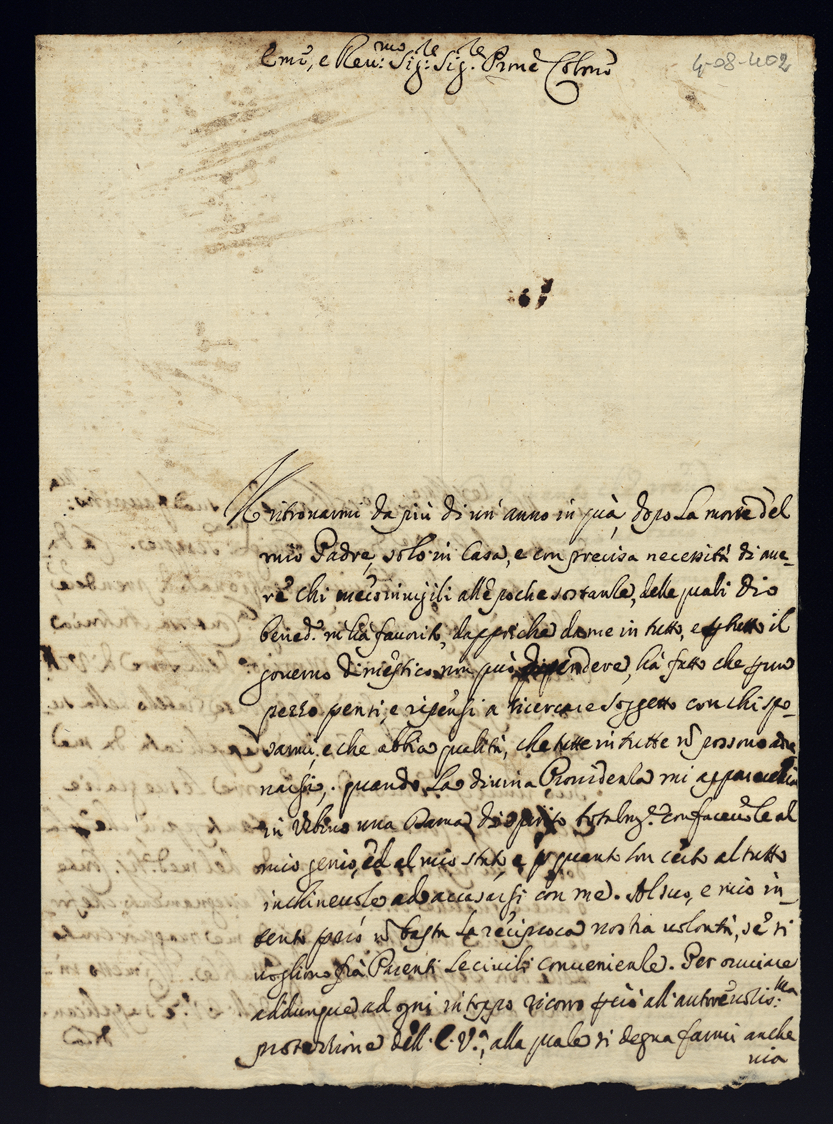 Emo, e Reu.mo Sig.re Sig.re Prne Colmo
4-08-402
Il ritrouarmi da più di un' anno in quà, dopo la morte del
mio Padre, solo in Casa, e con precisa necessità di aue-
re chi meco inuigili alle poche sostanze, delle quali Dio
bened.o m'hà fauorito, dapoiche da me in tutto, e p tutto il
gouerno domestico non può dipendere, hà fatto che p un
pezzo penti, e ripensi a ricercare soggetto con chi spo-
sarmi, e che abbia qualità, che tutte in tutte ñ possono
narsi, quando la diuina Prouidenza mi apparecchia
in Vrbino una Dama di spirito totalm.e confaceuole al
mio genio, ed al mio stato, e p quanto son certo al tutto
inchineuole ad accasarsi con me. Al suo, e mio in-
tento però ñ basta la reciproca nostra uolontà, se ui
uogliono frà Parenti le ciuili conuenienze. Per ouuiare
addunque ad ogni intoppo ricorro pciò all' autoreuolis.ma
protezzione dell' E. V.a, alla quale si degna farmi anche
uia